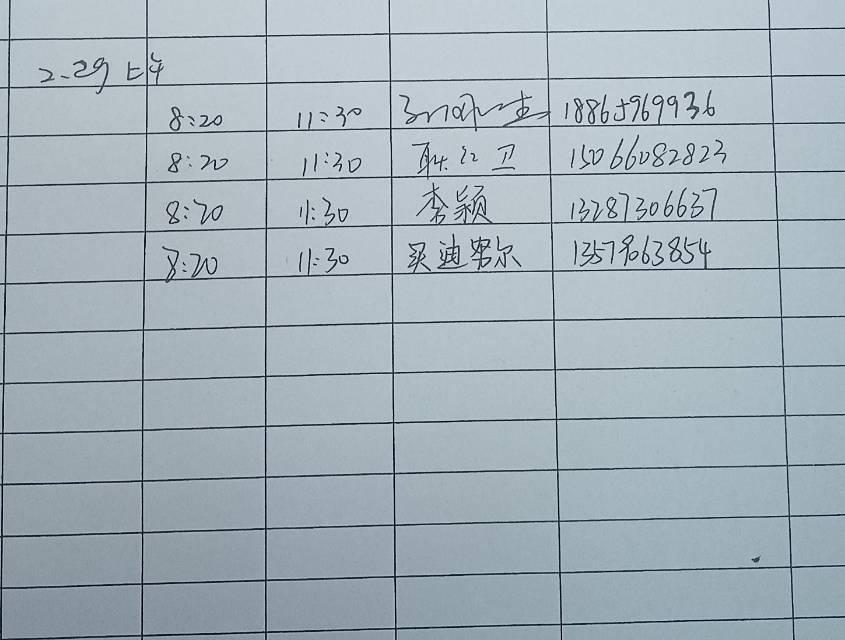 2.29 上午
8:20 11:30 18865969936
8:20 11:30 耿红卫 15066082823
8:20 11:30 李颖 13287306637
8:20 11:30 买迪努尔 13579063854